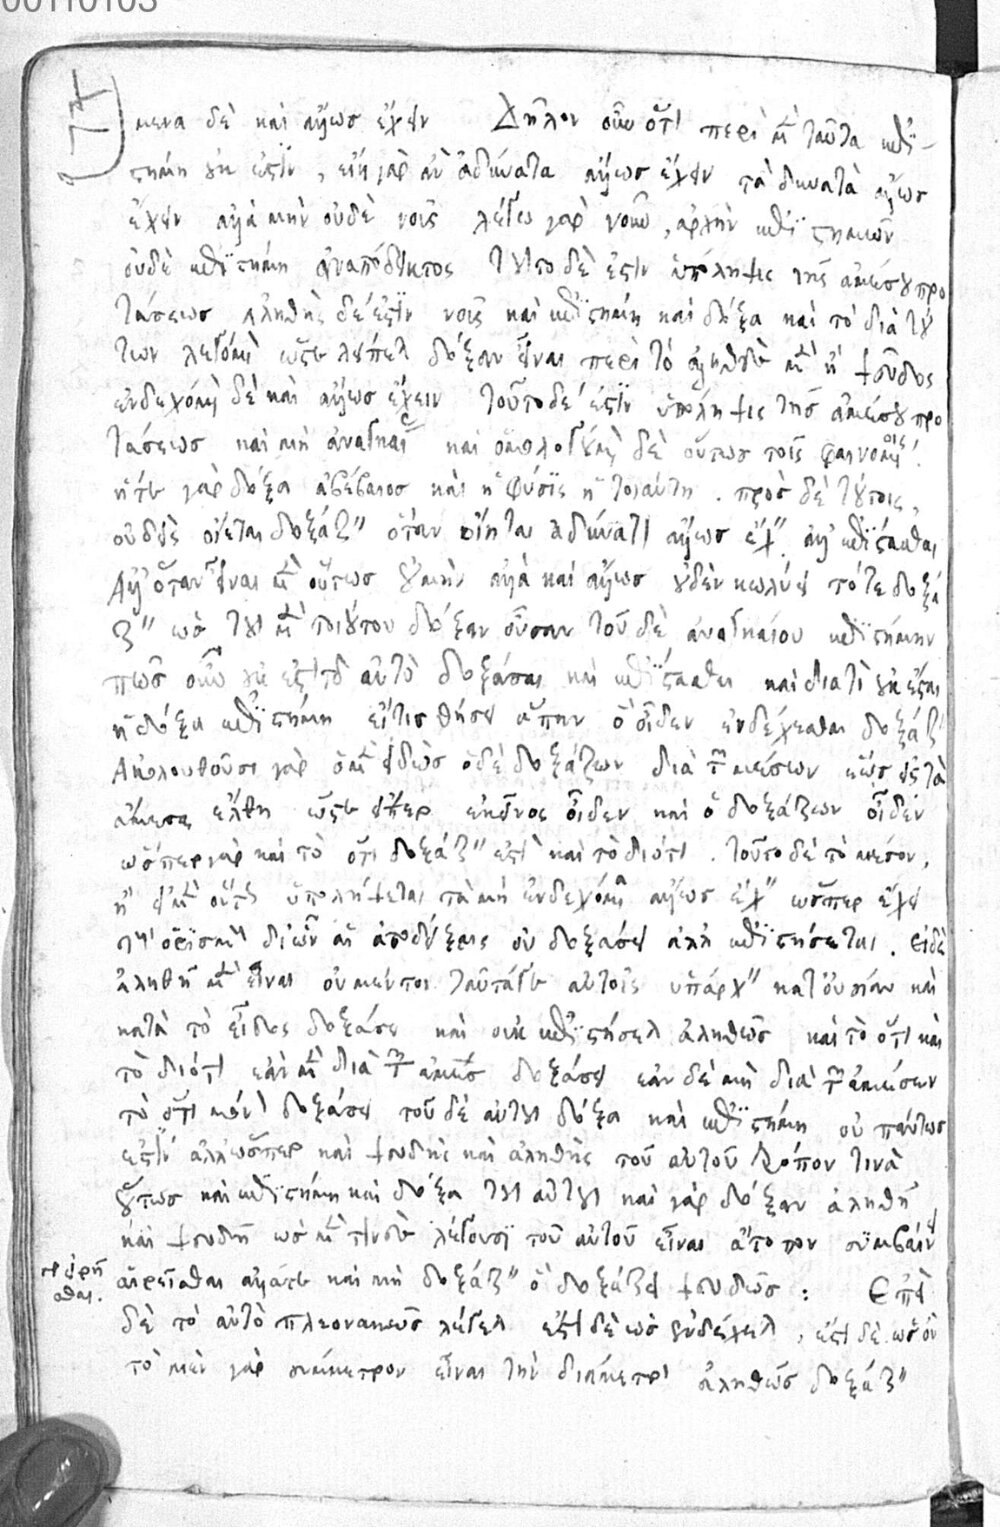 00110103
174
μενα δὲ καὶ ἄλλως ἔχειν Δῆλον οὖν ὅτι περὶ μὲν ταῦτα ἐπι-
στήμη οὐκ ἐστὶν, εἴη γὰρ ἂν ἀδύνατα ἄλλως ἔχειν τὰ δυνατὰ ἄλλως
ἔχειν ἀλλὰ μὴν οὐδὲ νοῦς λέγω γὰρ νοῦν, ἀρχὴν ἐπιστήμης
οὐδὲ ἐπιστήμη ἀναπόδεικτος τοῦτο δὲ ἐστὶν ὑπόληψις τῆς ἀμέσου προ
τάσεως ἀληθὴς δέ ἐστιν νοῦς καὶ ἐπιστήμη καὶ δόξα καὶ τὸ διὰ τού
των λεγόμενον ὥστε λείπεται δόξαν εἶναι περὶ τὸ ἀληθὲς μὲν ἢ ψεῦδος
ἐνδεχόμενον δὲ καὶ ἄλλως ἔχειν τοῦτο δέ ἐστιν ὑπόληψις τῆς ἀμέσου προ
τάσεως καὶ μὴ ἀναγκαίας καὶ ὁμολογούμενον δὲ οὕτως τοῖς φαινομένοις.
ἥτε γὰρ δόξα ἀβέβαιος καὶ ἡ φύσις ἡ τοιαύτη. πρὸς δὲ τούτοις,
οὐδεὶς οἴεται δοξάζειν ὅταν οἴηται ἀδύνατον ἄλλως ἔχειν. ἀλλ' ἐπίστασθαι
Ἀλλ' ὅταν εἶναι μὲν οὕτως οὐ μὴν ἀλλὰ καὶ ἄλλως οὐδὲν κωλύει τότε δοξά
ζειν ὡς τοῦ μὲν τοιούτου δόξαν οὖσαν τοῦ δὲ ἀναγκαίου ἐπιστήμην
πῶς οὖν οὐκ ἐστὶ τὸ αὐτὸ δοξάσαι καὶ ἐπίστασθαι καὶ διατὶ οὐκ ἔσται
ἡ δόξα ἐπιστήμη εἴτις θήσει ἅπαν ὃ οἶδεν ἐνδέχεσθαι δοξάζειν
Ἀκολουθοῦσι γὰρ ὁ μὲν εἰδὼς ὁ δὲ δοξάζων διὰ τῶν μέσων ἕως εἰς τὰ
ἄμεσα ἔλθη ὥστε εἴπερ ἐκεῖνος οἶδεν καὶ ὁ δοξάζων οἶδεν
ὥσπερ γὰρ καὶ τὸ ὅτι δοξάζειν ἐστὶ καὶ τὸ διότι. τοῦτο δὲ τὸ μέσον,
ἢ εἰ μὲν οὕτως ὑπολήψεται τὰ μὴ ἐνδεχόμενα ἄλλως ἔχειν ὥσπερ ἔχει
τοὺς ὁρισμοὺς δι' ὧν αἱ ἀποδείξεις οὐ δοξάσει ἀλλ' ἐπιστήσεται. εἰ δὲ
ἀληθῆ μὲν εἶναι οὐ μέντοι ταῦτάγε αὐτοῖς ὑπάρχειν κατ' οὐσίαν καὶ
κατὰ τὸ εἶδος δοξάσει καὶ οὐκ ἐπιστήσεται ἀληθῶς καὶ τὸ ὅτι καὶ
τὸ διότι ἐὰν μὲν διὰ τῶν ἀμέσων δοξάσει ἐὰν δὲ μὴ διὰ τῶν ἀμέσων
τὸ ὅτι μόνον δοξάσει τοῦ δὲ αὐτοῦ δόξα καὶ ἐπιστήμη οὐ πάντως
ἐστὶν ἀλλ' ὥσπερ καὶ ψευδὴς καὶ ἀληθὴς τοῦ αὐτοῦ τρόπον τινὰ
οὕτως καὶ ἐπιστήμη καὶ δόξα τοῦ αὐτοῦ καὶ γὰρ δόξαν ἀληθῆ
καὶ ψευδῆ ὡς μὲν τινὲς λέγουσι τοῦ αὐτοῦ εἶναι ἄτοπον συμβαίνει
αἱρεῖσθαι ἄλλάτε καὶ μὴ δοξάζειν ὃ δοξάζει ψευδῶς: Ἐπεὶ
δὲ τὸ αὐτὸ πλεοναχῶς λέγεται ἔστι δὲ ὡς ἐνδέχεται, ἔστι δὲ ὡς οὔ
τὸ μὲν γὰρ σύμμετρον εἶναι τὴν διάμετρον ἀληθῶς δοξάζειν